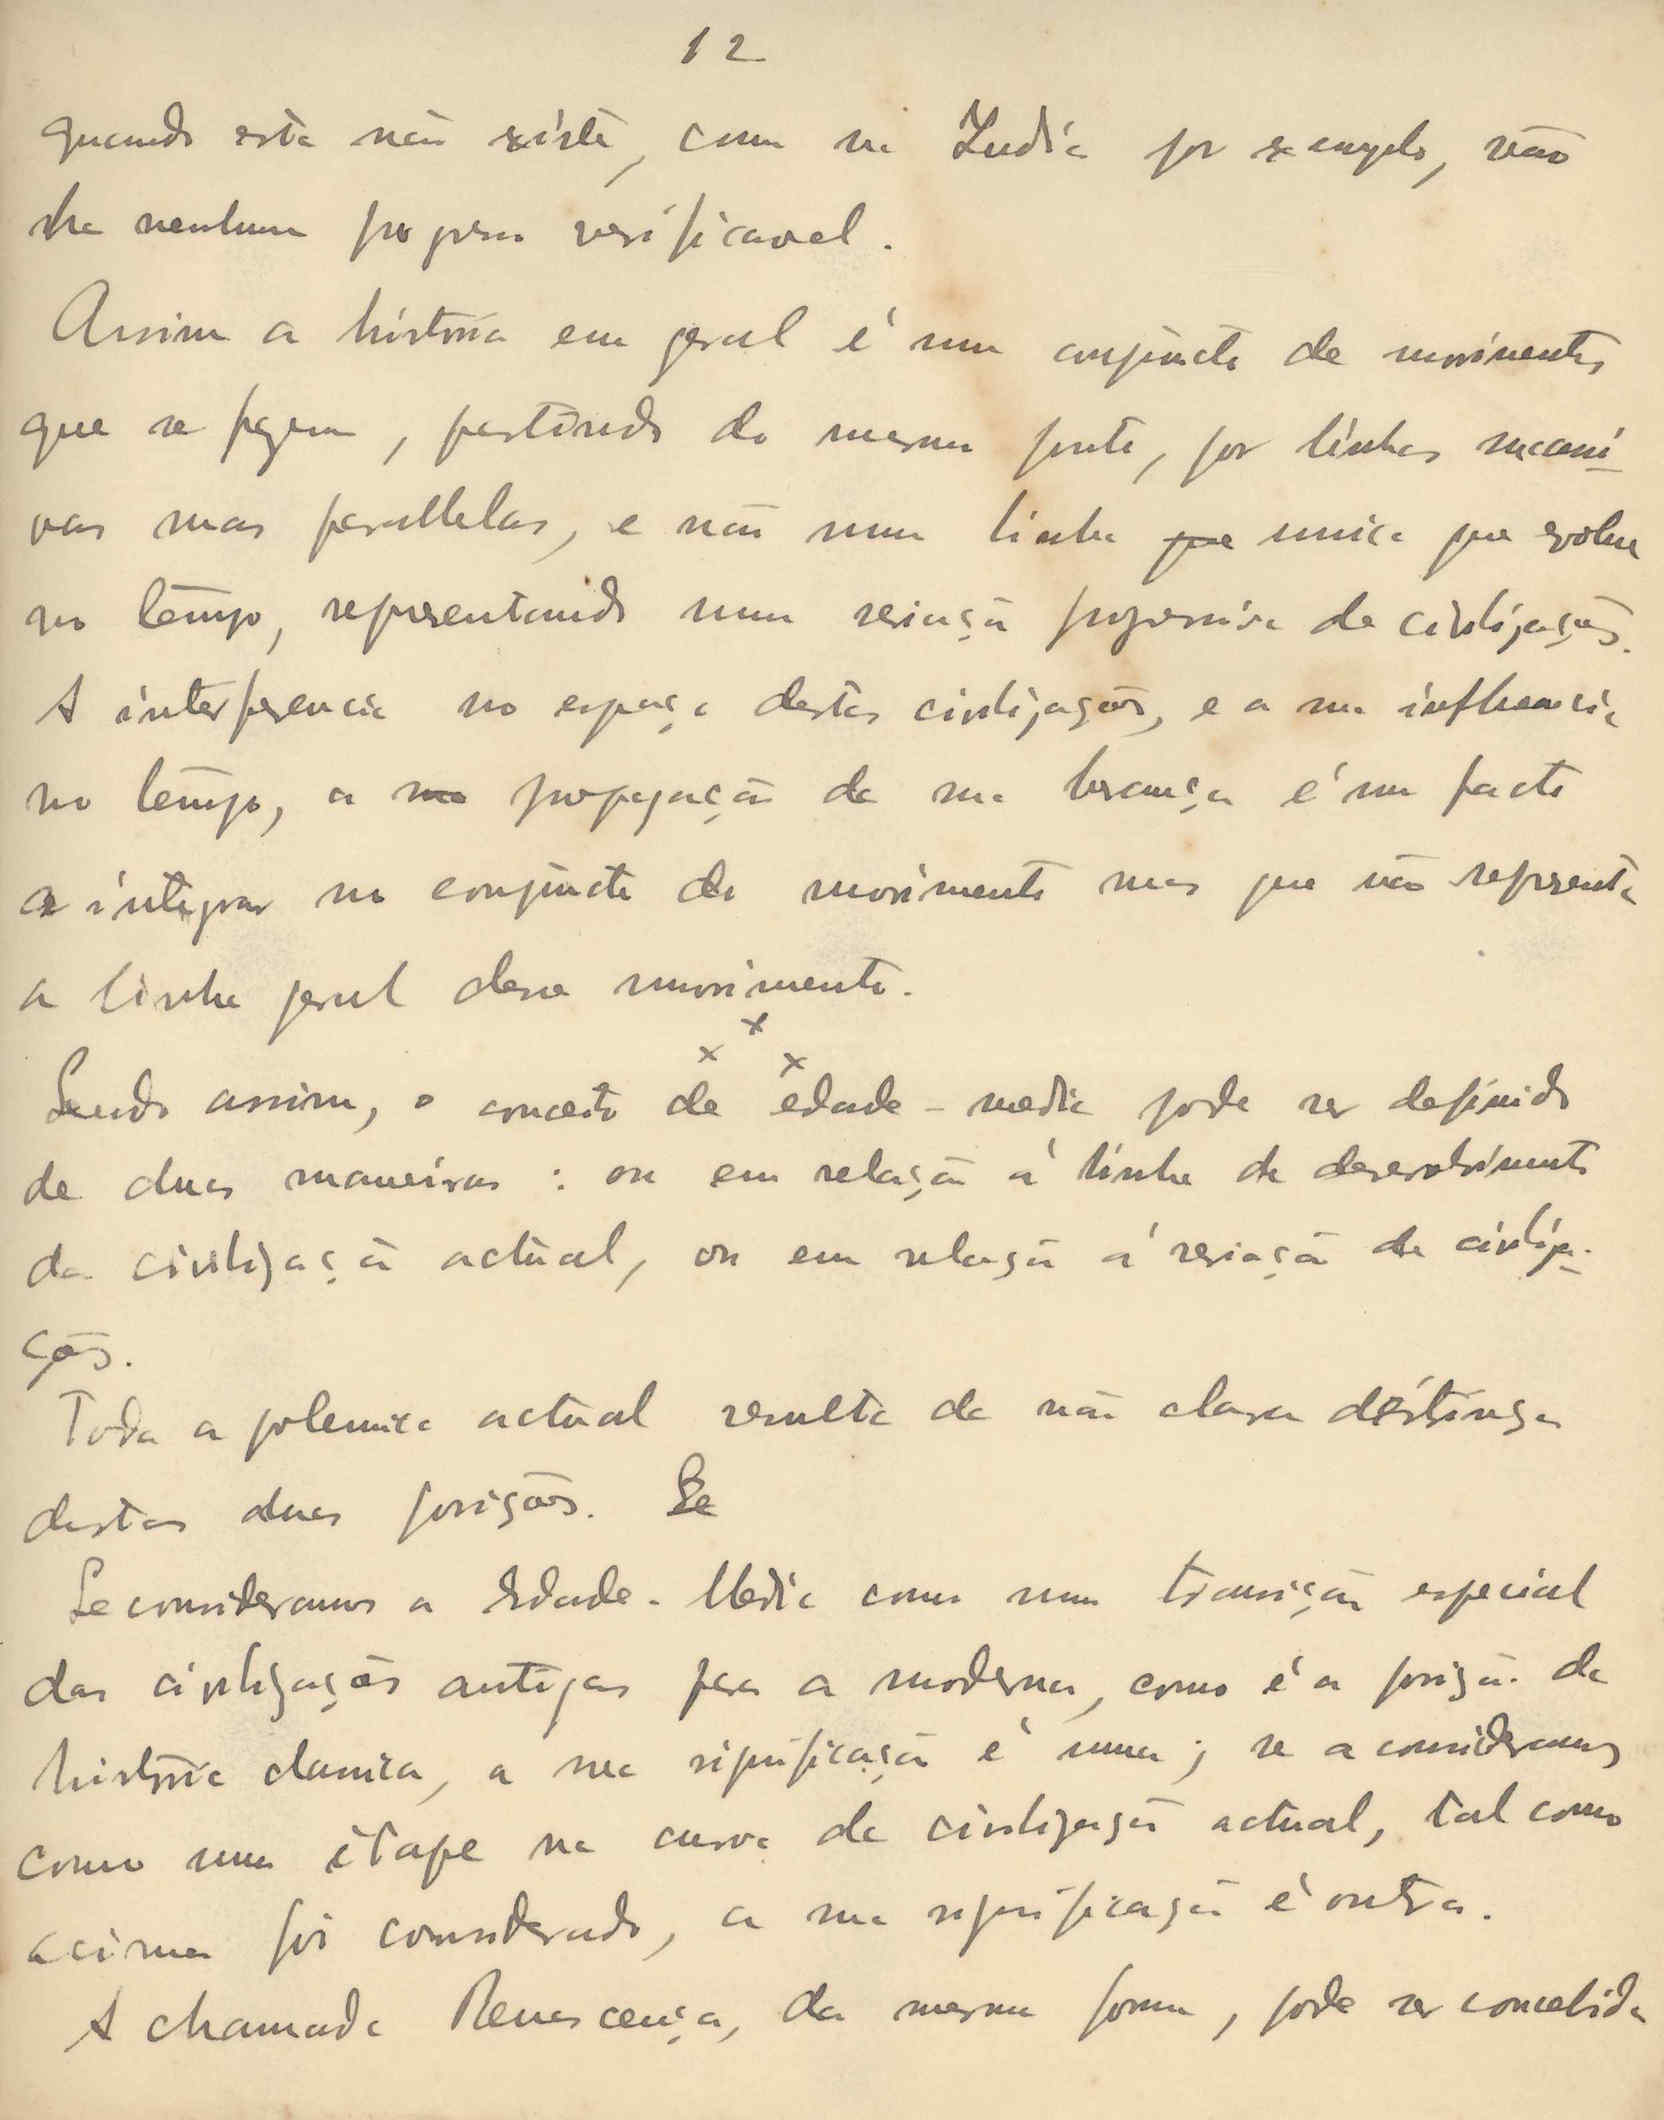 12
quando esta não existe, como na India por exemplo, não
ha nenhum progresso verificavel.
Assim a história em geral é um conjuncto de movimentos
que se fazem, partindo do mesmo ponto, por linhas
mas parallelas, e não numa linha que unica que evolue
no tempo, representando uma seriação progressiva de civilizações.
A interferencia no espaço destas civilizações, e a sua influencia
no tempo, a propagação da sua herança é um facto
a integrar no conjuncto do movimento mas que não representa
a linha geral desse movimento.
x x x
Sendo assim, o conceito de edade-media pode ser definido
de duas maneiras: ou em relação á linha de desenvolvimento
da civilização actual, ou em relação á seriação de civiliza-
ções.
Toda a polemica actual resulta da não clara distinção
destas duas posições. Se
Se consideramos a Edade-Media como uma transição especial
das civilizações antigas para a moderna, como é a posição da
história classica, a sua significação é uma; se a consideramos
como uma étape na curva da civilização actual, tal como
acima foi considerado, a sua significação é outra.
A chamada Renascença, da mesma forma, pode ser concebida